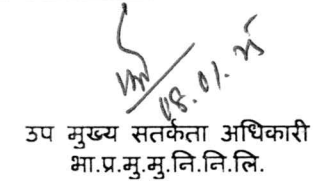 08.01.25
उप मुख्य सतर्कता अधिकारी
भा.प्र.मु.मु.नि.नि.लि.